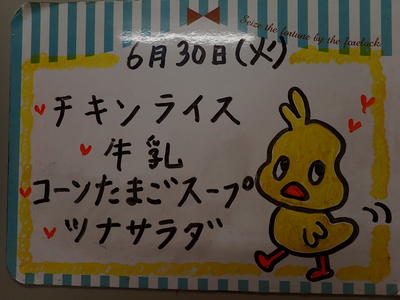 Seize the fortune by the forelock.
6月30日(火)
チキンライス
牛乳
コーンたまごスープ
ツナサラダ